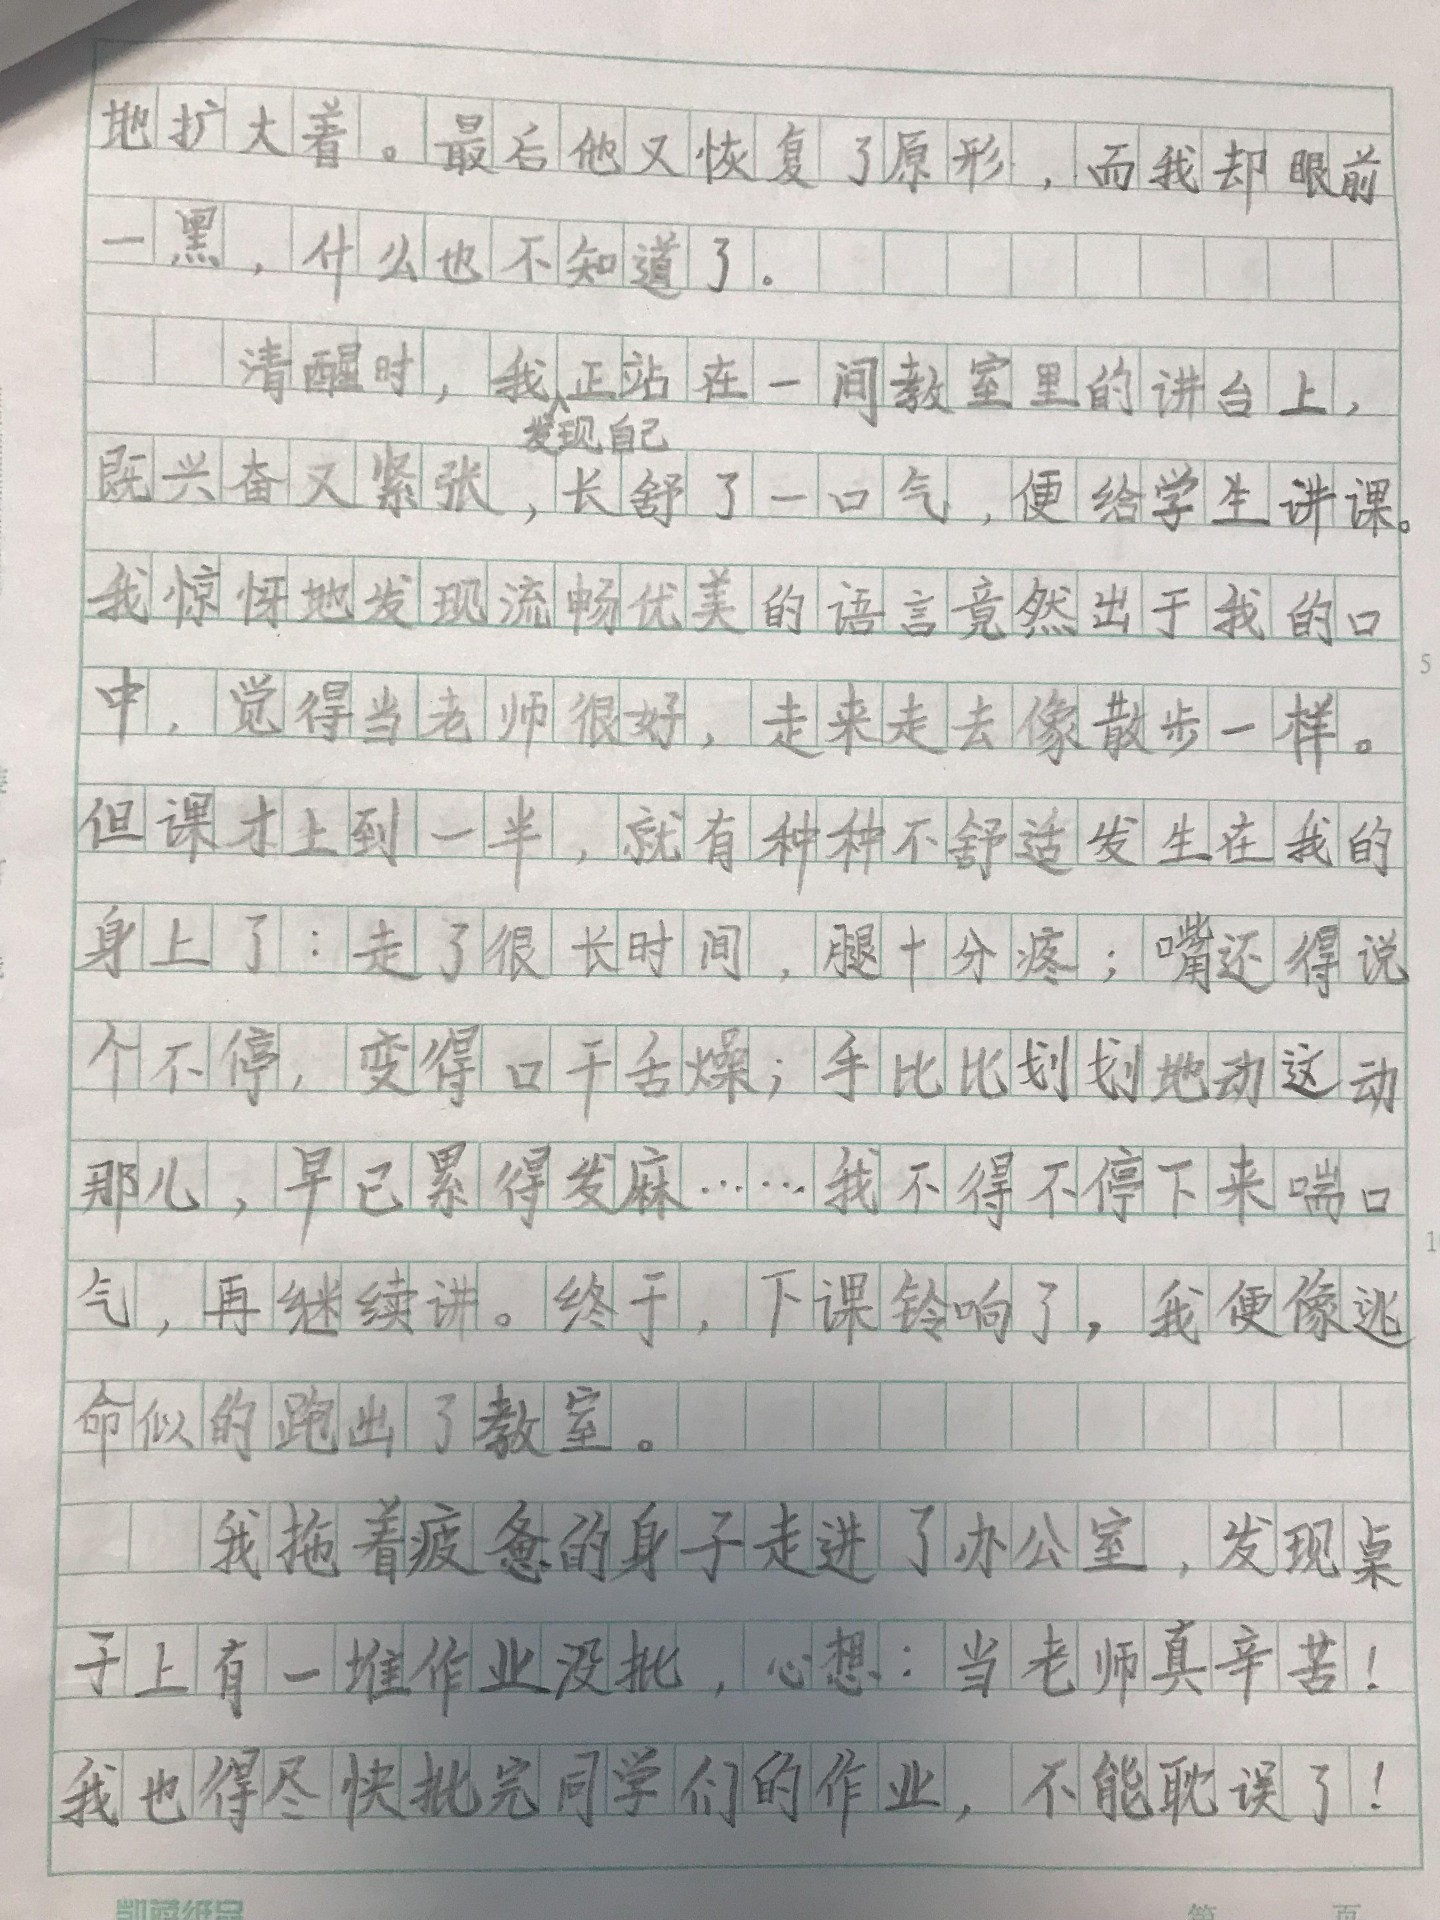 地扩大着。最后他又恢复了原形，而我却眼前
一黑，什么也不知道了。
清醒时，我正站在一间教室里的讲台上，
发现自己
既兴奋又紧张，长舒了一口气，便给学生讲课。
我惊怀地发现流畅优美的语言竟然出于我的口
中，觉得当老师很好，走来走去像散步一样。
但课才上到一半，就有种种不舒适发生在我的
身上了：走了很长时间，腿十分疼；嘴还得说
个不停，变得口干舌燥；手比比划划地动这动
那儿，早已累得发麻……我不得不停下来喘口
气，再继续讲。终于，下课铃响了，我便像逃
命似的跑出了教室。
我拖着疲惫的身子走进了办公室，发现桌
子上有一堆作业没批，心想：当老师真辛苦！
我也得尽快批完同学们的作业，不能耽误了！
5
1
凯萨纸品
第 页